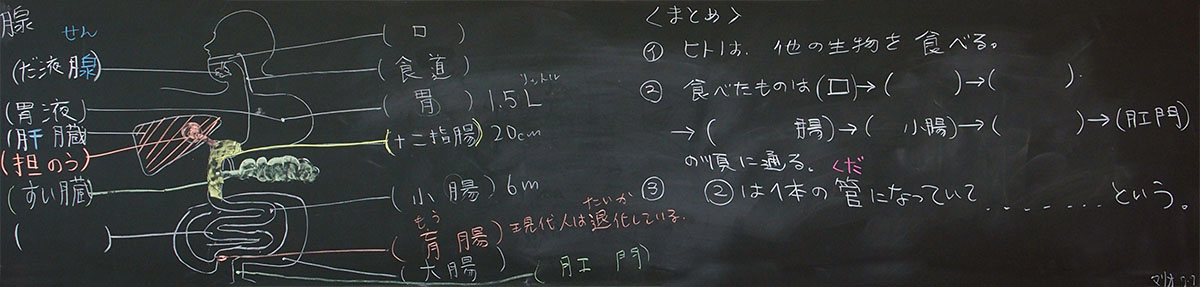 腺 せん
(だ液腺)
(胃液)
(肝臓)
(担のう)
(すい臓)
(  )
(口)
(食道)
(胃) 1.5L リットル
(十二指腸) 20cm
(小腸) 6m
(盲腸) もう 現代人は退化している。 たいか
(大腸) (肛門)
<まとめ>
① ヒトは、他の生物を食べる。
② 食べたものは(口)→(  )→(  )
→(  腸)→(小腸)→(  )→(肛門)
の順に通る。
③ ②は1本の管になっていて........という。 くだ
マリオ